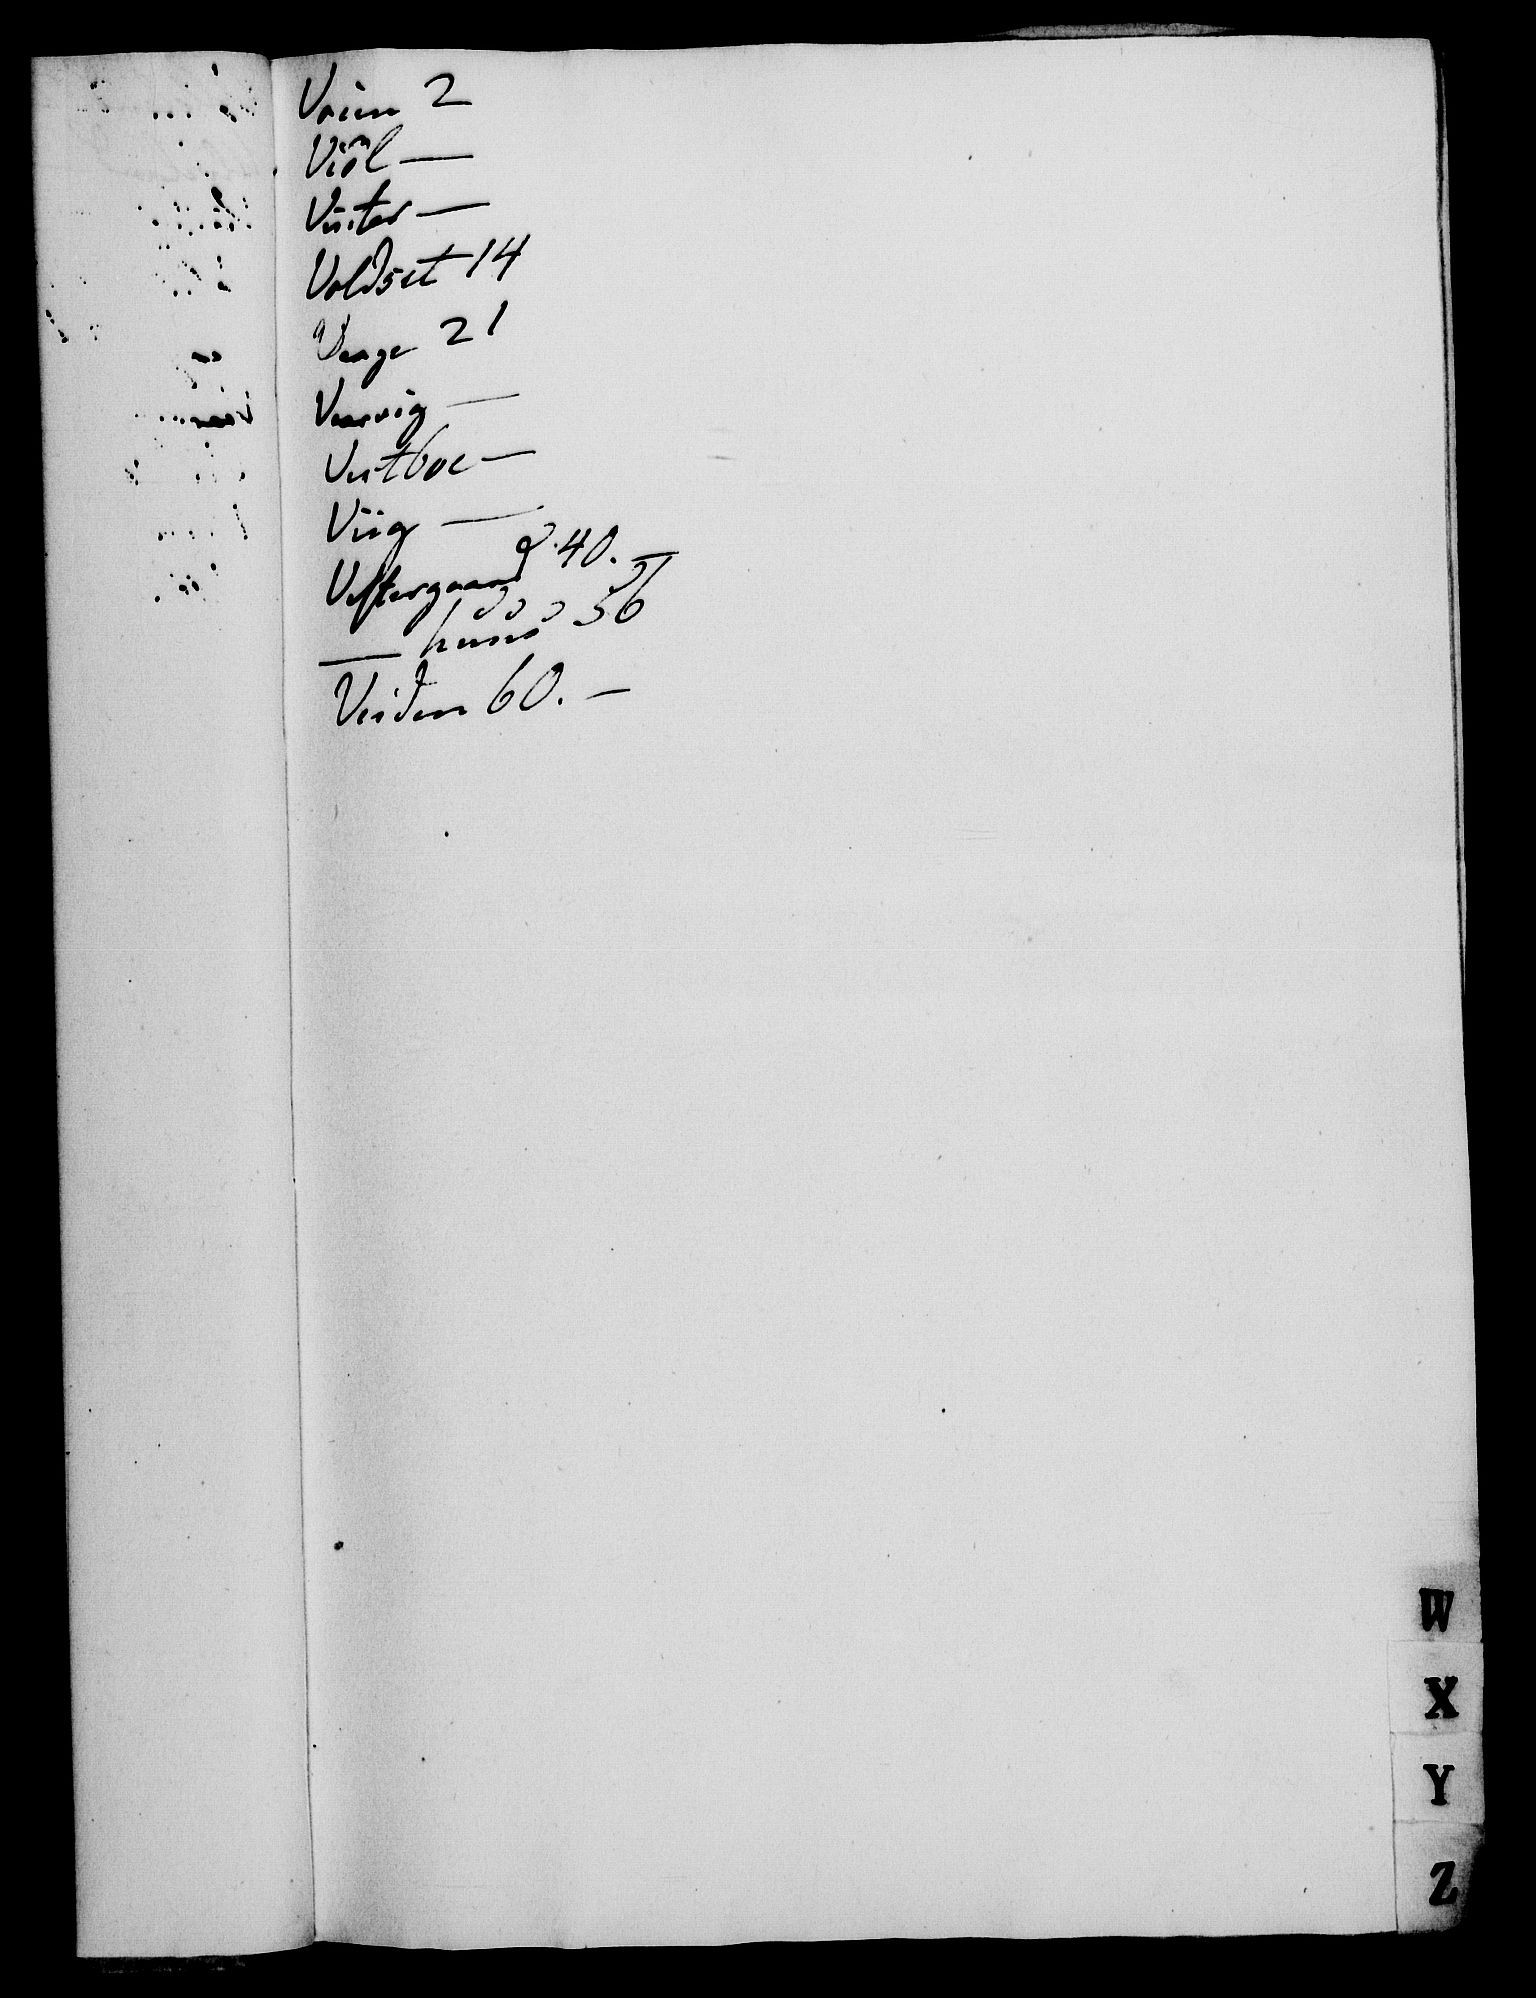 Voien 2
Viöl —
Vister —
Voldset 14
Vaage 21
Vaarvig —
Vestboe —
Viig —
Vestergaard 40. —
— huus 56
Veiden 60. —
W
X
Y
Z